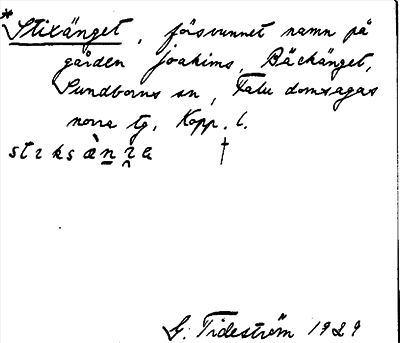 *Stixänget, försvunnet namn på
gården Joakims, Bäckänget,
Sundborns sn, Falu domsagas
norra tg, Kopp. l.
†
G. Tideström 1929